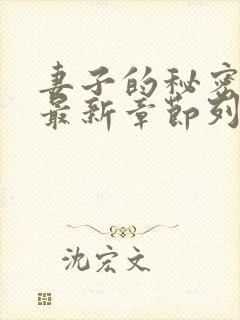 妻子的秘密
最新章节列
沈宏文